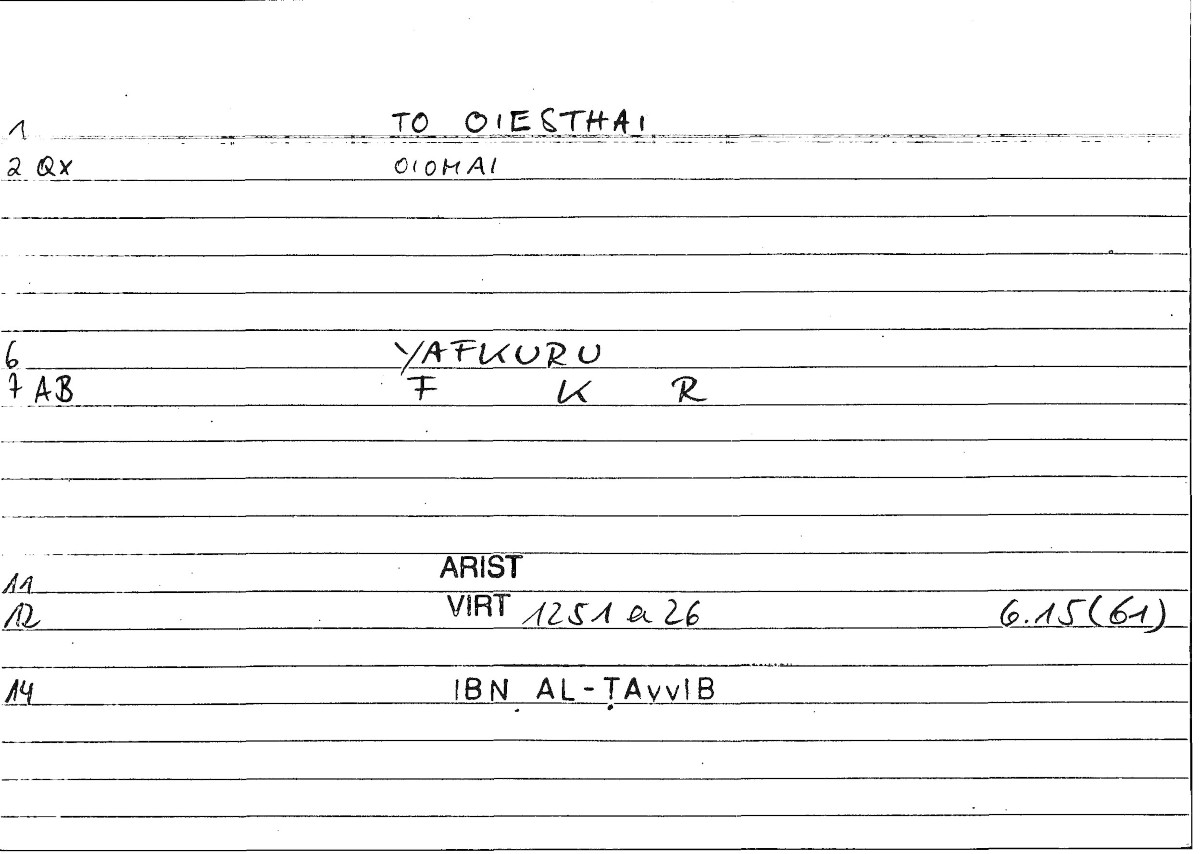 1 TO OIESTHAI
2 QX OIOMAI
6 YAFKURU
7 AB F K R
11 ARIST
12 VIRT 1251 a 26 6.15(61)
14 IBN AL-ṬAyyIB